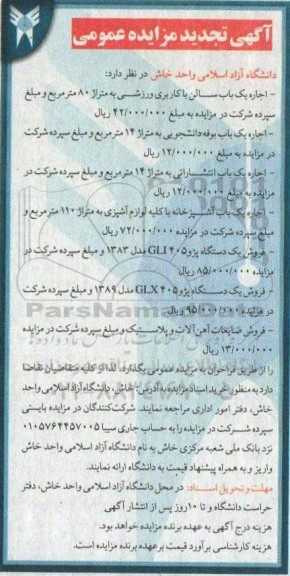 آگهی تجدید مزایده عمومی
دانشگاه آزاد اسلامی واحد خاش در نظر دارد:
- اجاره یک باب سالن با کاربری ورزشی به متراژ ۸۰ مترمربع و مبلغ
سپرده شرکت در مزایده به مبلغ ۴۲/۰۰۰/۰۰۰ ریال
- اجاره یک باب بوفه دانشجویی به متراژ ۱۴ مترمربع و مبلغ سپرده شرکت
در مزایده به مبلغ ۱۲/۰۰۰/۰۰۰ ریال
- اجاره یک باب انتشاراتی به متراژ ۱۴ مترمربع و مبلغ سپرده شرکت در
مزایده به مبلغ ۱۲/۰۰۰/۰۰۰ ریال
- اجاره یک باب آشپزخانه با کلیه لوازم آشپزی به متراژ ۱۱۰ مترمربع و
مبلغ سپرده شرکت در مزایده ۷۲/۰۰۰/۰۰۰ ریال
- فروش یک دستگاه پژو ۴۰۵ GLI مدل ۱۳۸۳ و مبلغ سپرده شرکت در
مزایده ۸۵/۰۰۰/۰۰۰ ریال
- فروش یک دستگاه پژو ۴۰۵ GLX مدل ۱۳۸۹ و مبلغ سپرده شرکت
در مزایده ۹۵/۰۰۰/۰۰۰ ریال
- فروش ضایعات آهن آلات و پلاستیک و مبلغ سپرده شرکت در مزایده
۱۳/۰۰۰/۰۰۰ ریال
را از طریق فراخوان به مزایده عمومی بگذارد. لذا از کلیه متقاضیان تقاضا
دارد به منظور خرید اسناد مزایده به آدرس: خاش، دانشگاه آزاد اسلامی واحد
خاش، دفتر امور اداری مراجعه نمایند. شرکت‌کنندگان در مزایده بایستی
سپرده شرکت در مزایده را به حساب جاری سیبا ۰۱۰۵۷۶۴۴۵۷۰۰۵
نزد بانک ملی شعبه مرکزی خاش به نام دانشگاه آزاد اسلامی واحد خاش
واریز و به همراه پیشنهاد قیمت به دانشگاه ارائه نمایند.
مهلت و تحویل اسناد: در محل دانشگاه آزاد اسلامی واحد خاش، دفتر
حراست دانشگاه و تا ۱۰ روز پس از انتشار آگهی
هزینه درج آگهی به عهده برنده مزایده خواهد بود.
هزینه کارشناسی برآورد قیمت بر عهده برنده مزایده است.